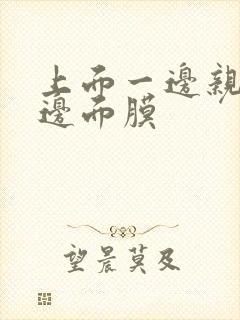 上而一邊親
邊而膜
望晨莫及